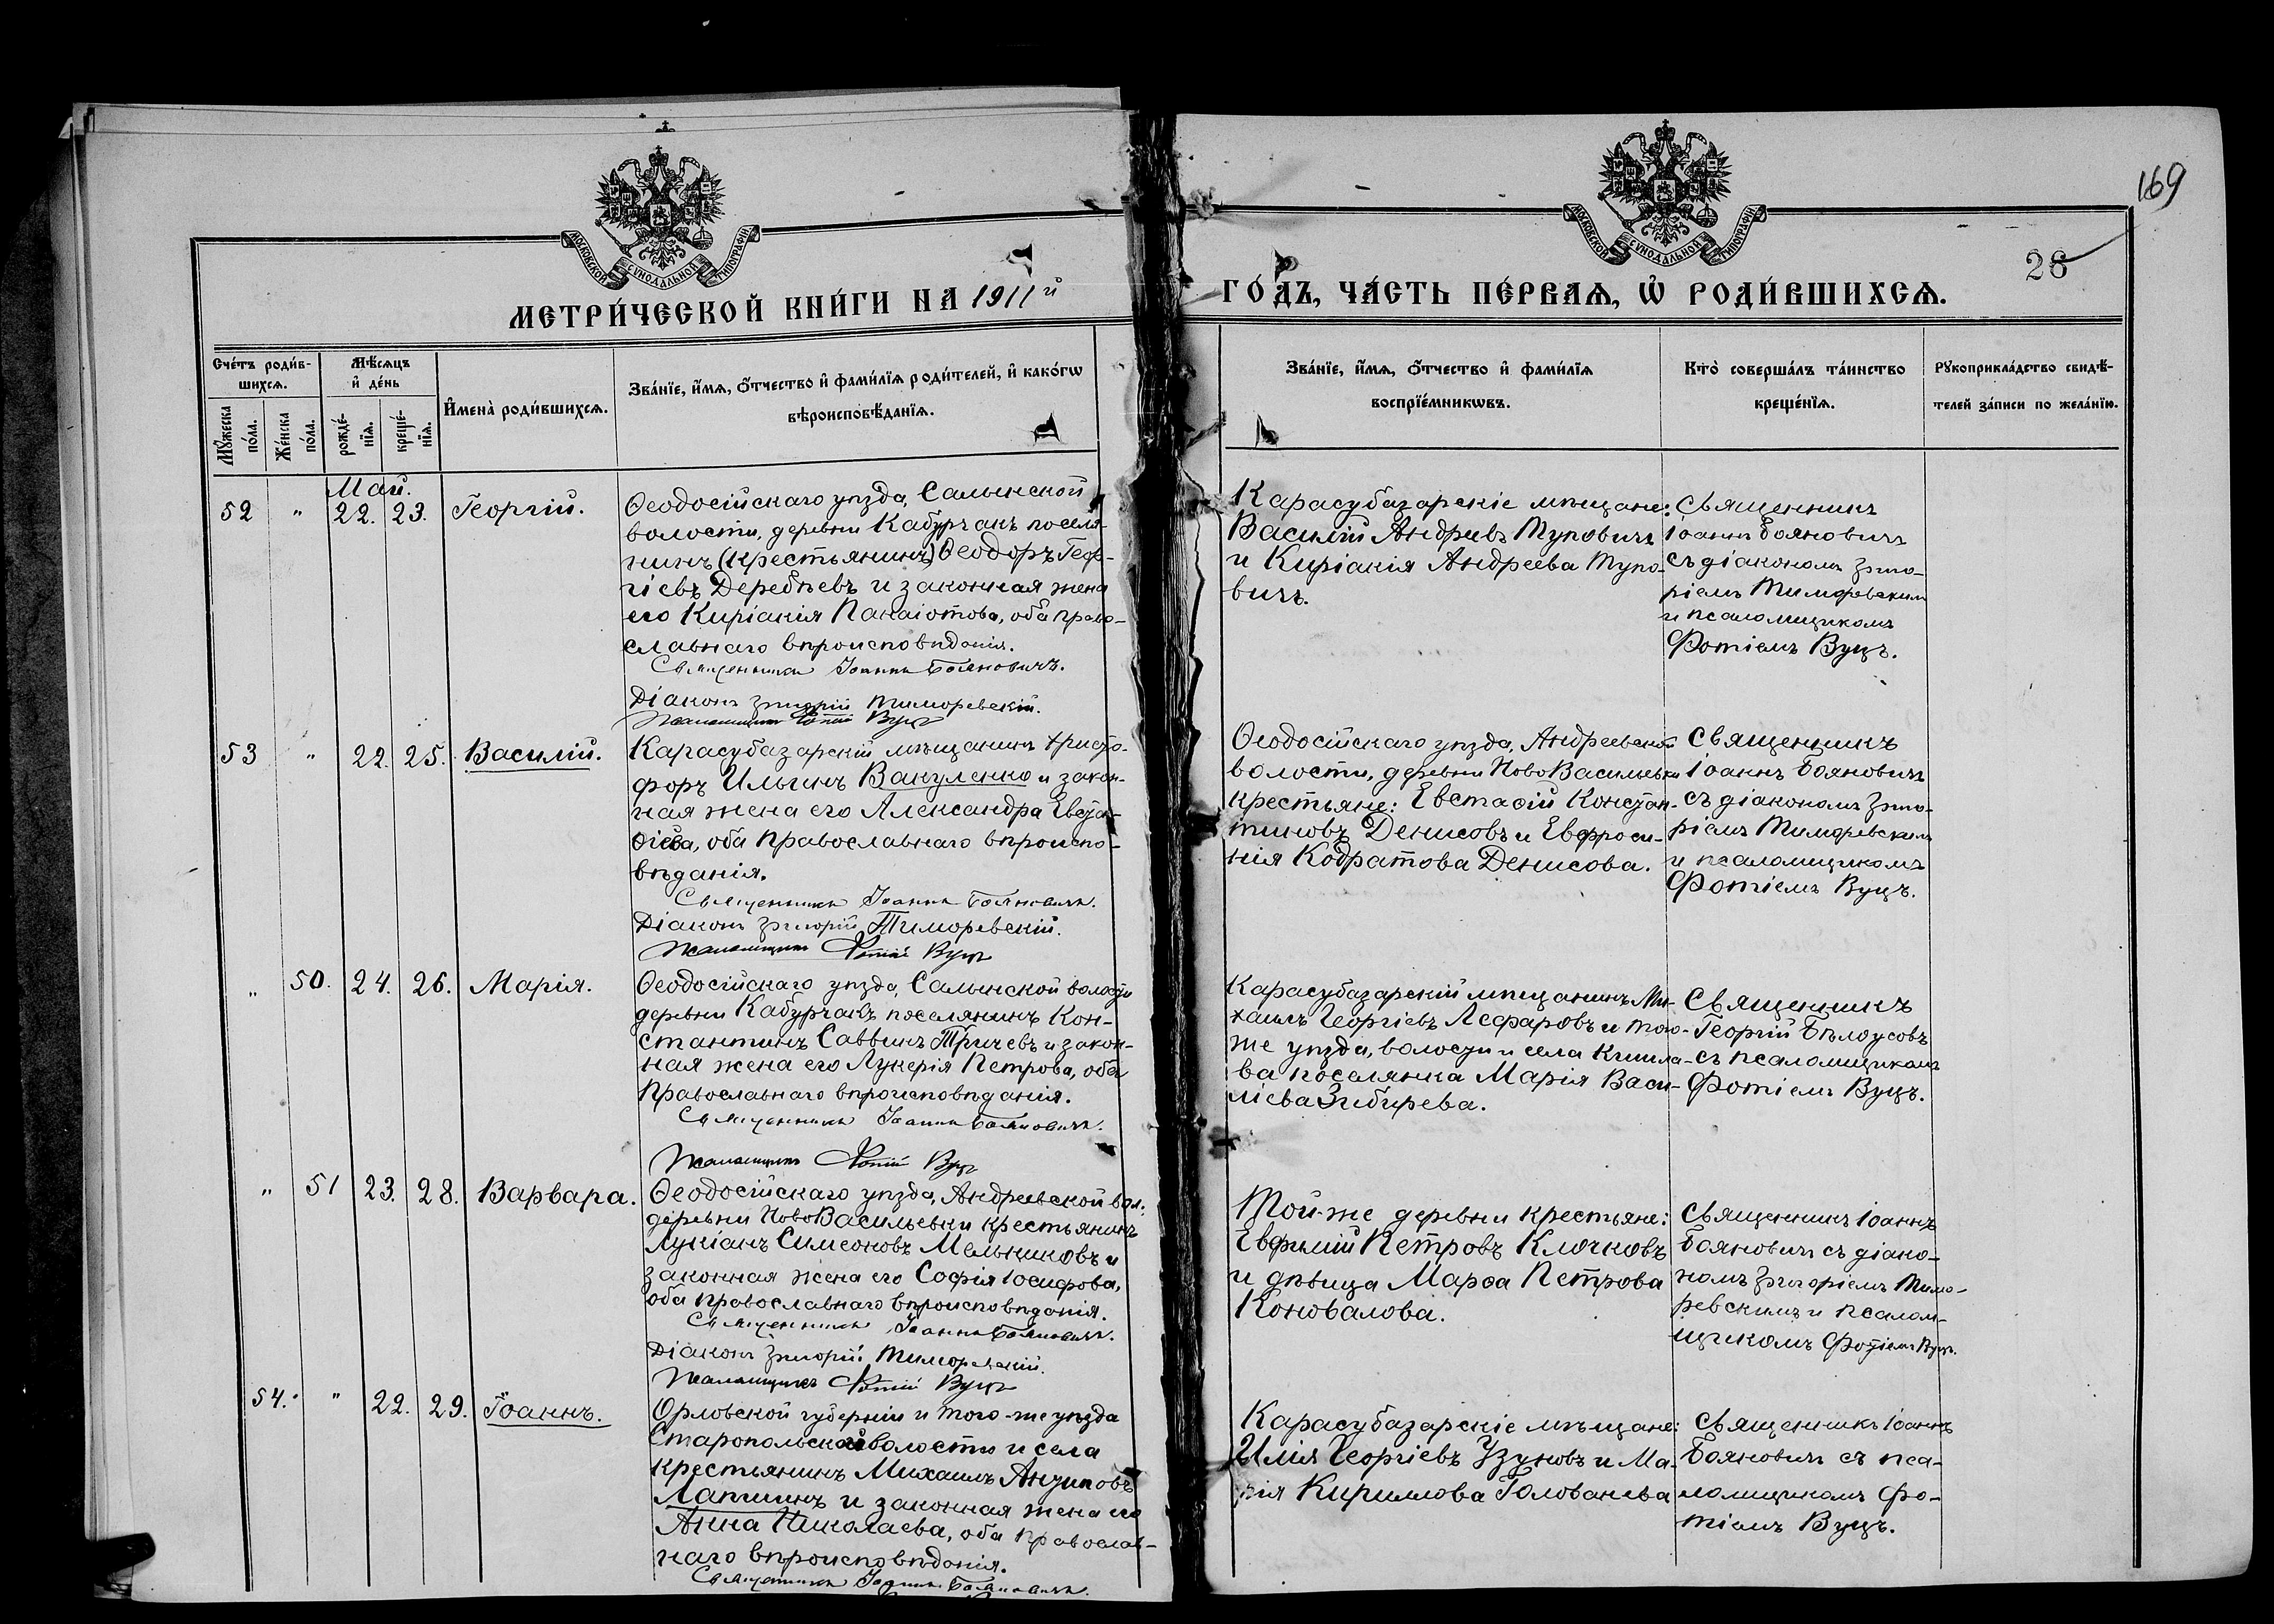 169
28
МОСКОВСКОЙ СУНОДАЛЬНОЙ ТИПОГРАФІИ
МОСКОВСКОЙ СУНОДАЛЬНОЙ ТИПОГРАФІИ
МЕТРИ́ЧЕСКОЙ КНИ́ГИ НА 1911й
ГО́ДЪ, ЧА́СТЬ ПЕ́РВАѦ, Ѡ҆ РОДИ́ВШИХСѦ.
Сче́тъ роди́в-
шихсѧ.
Мѹ́жеска по́ла.
Же́нска по́ла.
Мѣ́сѧцъ
и҆ де́нь
рожде́-
нїѧ.
креще́-
нїѧ.
И҆мена̀ роди́вшихсѧ.
Зва́нїе, и҆́мѧ, ѻ҆́тчество и҆ фами́лїѧ роди́телей, и҆ како́гѡ
вѣроисповѣ́данїѧ.
Зва́нїе, и҆́мѧ, ѻ҆́тчество и҆ фами́лїѧ
воспрїе́мникѡвъ.
Кто̀ соверша́лъ та́инство
креще́нїѧ.
Рѹкоприкла́дство свидѣ́-
телей за́писи по жела́нїю.
Май.
52 " 22. 23. Георгій.
Ѳеодосійскаго уѣзда, Салынской
волости, деревни Кабурчакъ поселя-
нинъ (крестьянинъ) Ѳеодоръ Геор-
гіевъ Деребѣевъ и законная жена
его Киріакія Панаіотова, оба право-
славнаго вѣроисповѣданія.
Священникъ Іоаннъ Бояновичъ.
Діаконъ Григорій Тиморевскій.
Псаломщикъ Фотій Вуцъ
Карасубазарскіе мѣщане:
Василій Андреевъ Туповичъ
и Киріакія Андреева Тупо-
вичъ.
Священникъ
Іоаннъ Бояновичъ
съ діакономъ Григо-
ріемъ Тиморевскимъ
и псаломщикомъ
Фотіемъ Вуцъ.
53 " 22. 25. Василій.
Карасубазарскій мѣщанинъ Христо-
форъ Ильинъ Вакуленко и закон-
ная жена его Александра Евста-
ѳіева, оба православнаго вѣроиспо-
вѣданія.
Священникъ Іоаннъ Бояновичъ.
Діаконъ Григорій Тиморевскій.
Псаломщикъ Фотій Вуцъ
Ѳеодосійскаго уѣзда, Андреевской
волости, деревни НовоВасильевки
крестьяне: Евстаѳій Констан-
тиновъ Денисовъ и Евфроси-
нія Кодратова Денисова.
Священникъ
Іоаннъ Бояновичъ
съ діакономъ Григо-
ріемъ Тиморевскимъ
и псаломщикомъ
Фотіемъ Вуцъ.
" 50. 24. 26. Марія.
Ѳеодосійскаго уѣзда, Салынской волости
деревни Кабурчакъ поселянинъ Кон-
стантинъ Саввинъ Тричевъ и закон-
ная жена его Лукерія Петрова, оба
православнаго вѣроисповѣданія.
Священникъ Іоаннъ Бояновичъ.
Псаломщикъ Фотій Вуцъ
Карасубазарскій мѣщанинъ Ми-
хаилъ Георгіевъ Лефаровъ и того-
же уѣзда, волости и села Кишла-
ва поселянка Марія Васи-
ліева Зибирева.
Священникъ
Георгій Бѣлоусовъ
съ псаломщикомъ
Фотіемъ Вуцъ.
" 51 23. 28. Варвара.
Ѳеодосійскаго уѣзда, Андреевской вол.
деревни НовоВасильевки крестьянинъ
Лукіанъ Симеоновъ Мельниковъ и
законная жена его Софія Іосифова,
оба православнаго вѣроисповѣданія.
Священникъ Іоаннъ Бояновичъ.
Діаконъ Григорій Тиморевскій.
Псаломщикъ Фотій Вуцъ
Той-же деревни крестьяне:
Евфимій Петровъ Клочковъ
и дѣвица Марѳа Петрова
Коновалова.
Священникъ Іоаннъ
Бояновичъ съ діако-
номъ Григоріемъ Тимо-
ревскимъ и псалом-
щикомъ Фотіемъ Вуцъ.
54. " 22. 29. Іоаннъ.
Орловской губерніи и того-же уѣзда
Старопольской волости и села
крестьянинъ Михаилъ Анѳиповъ
Лапшинъ и законная жена его
Анна Николаева, оба православ-
наго вѣроисповѣданія.
Священникъ Іоаннъ Бояновичъ.
Карасубазарскіе мѣщане:
Илія Георгіевъ Узуновъ и Ма-
рія Кириллова Голованева
Священникъ Іоаннъ
Бояновичъ съ пса-
ломщикомъ Фо-
тіемъ Вуцъ.